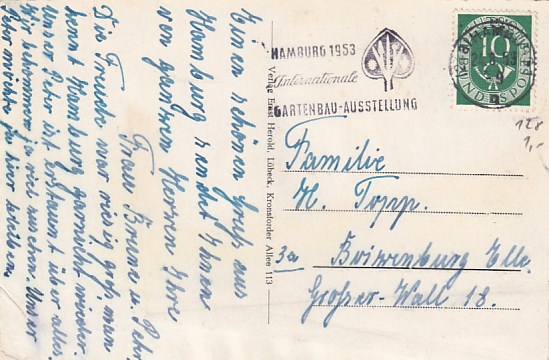 Einen schönen Gruß aus
Hamburg sendet Ihnen
von ganzem Herzen Ihre
Frau Bruns u. Petr
Die Freude war riesig groß man
kennt Hamburg garnicht wieder.
Unser Peter ist erstaunt über alles.
Unser
Peter möchte ja hier bleiben
Verlag Ernst Herold, Lübeck, Kronsforder Allee 113
HAMBURG 1953
Internationale
GARTENBAU-AUSSTELLUNG
10
DEUTSCHE
BUNDESPOST
128
1,-
Familie
H. Topp.
3a Boizenburg Elbe
Großer-Wall 18.